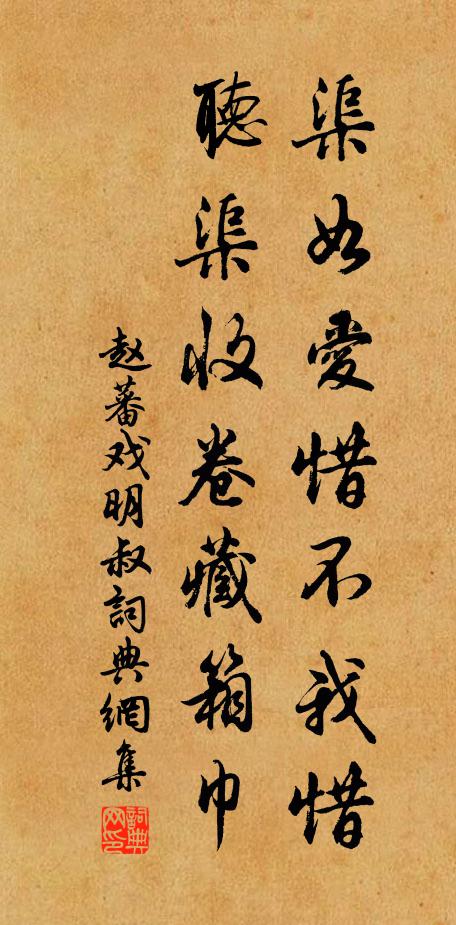 渠如愛惜不我惜
聽渠收卷藏箱巾
赵蕃戏明叔詞典網集
詞典网印